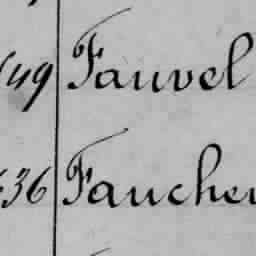 49 Fauvel
36 Faucheu